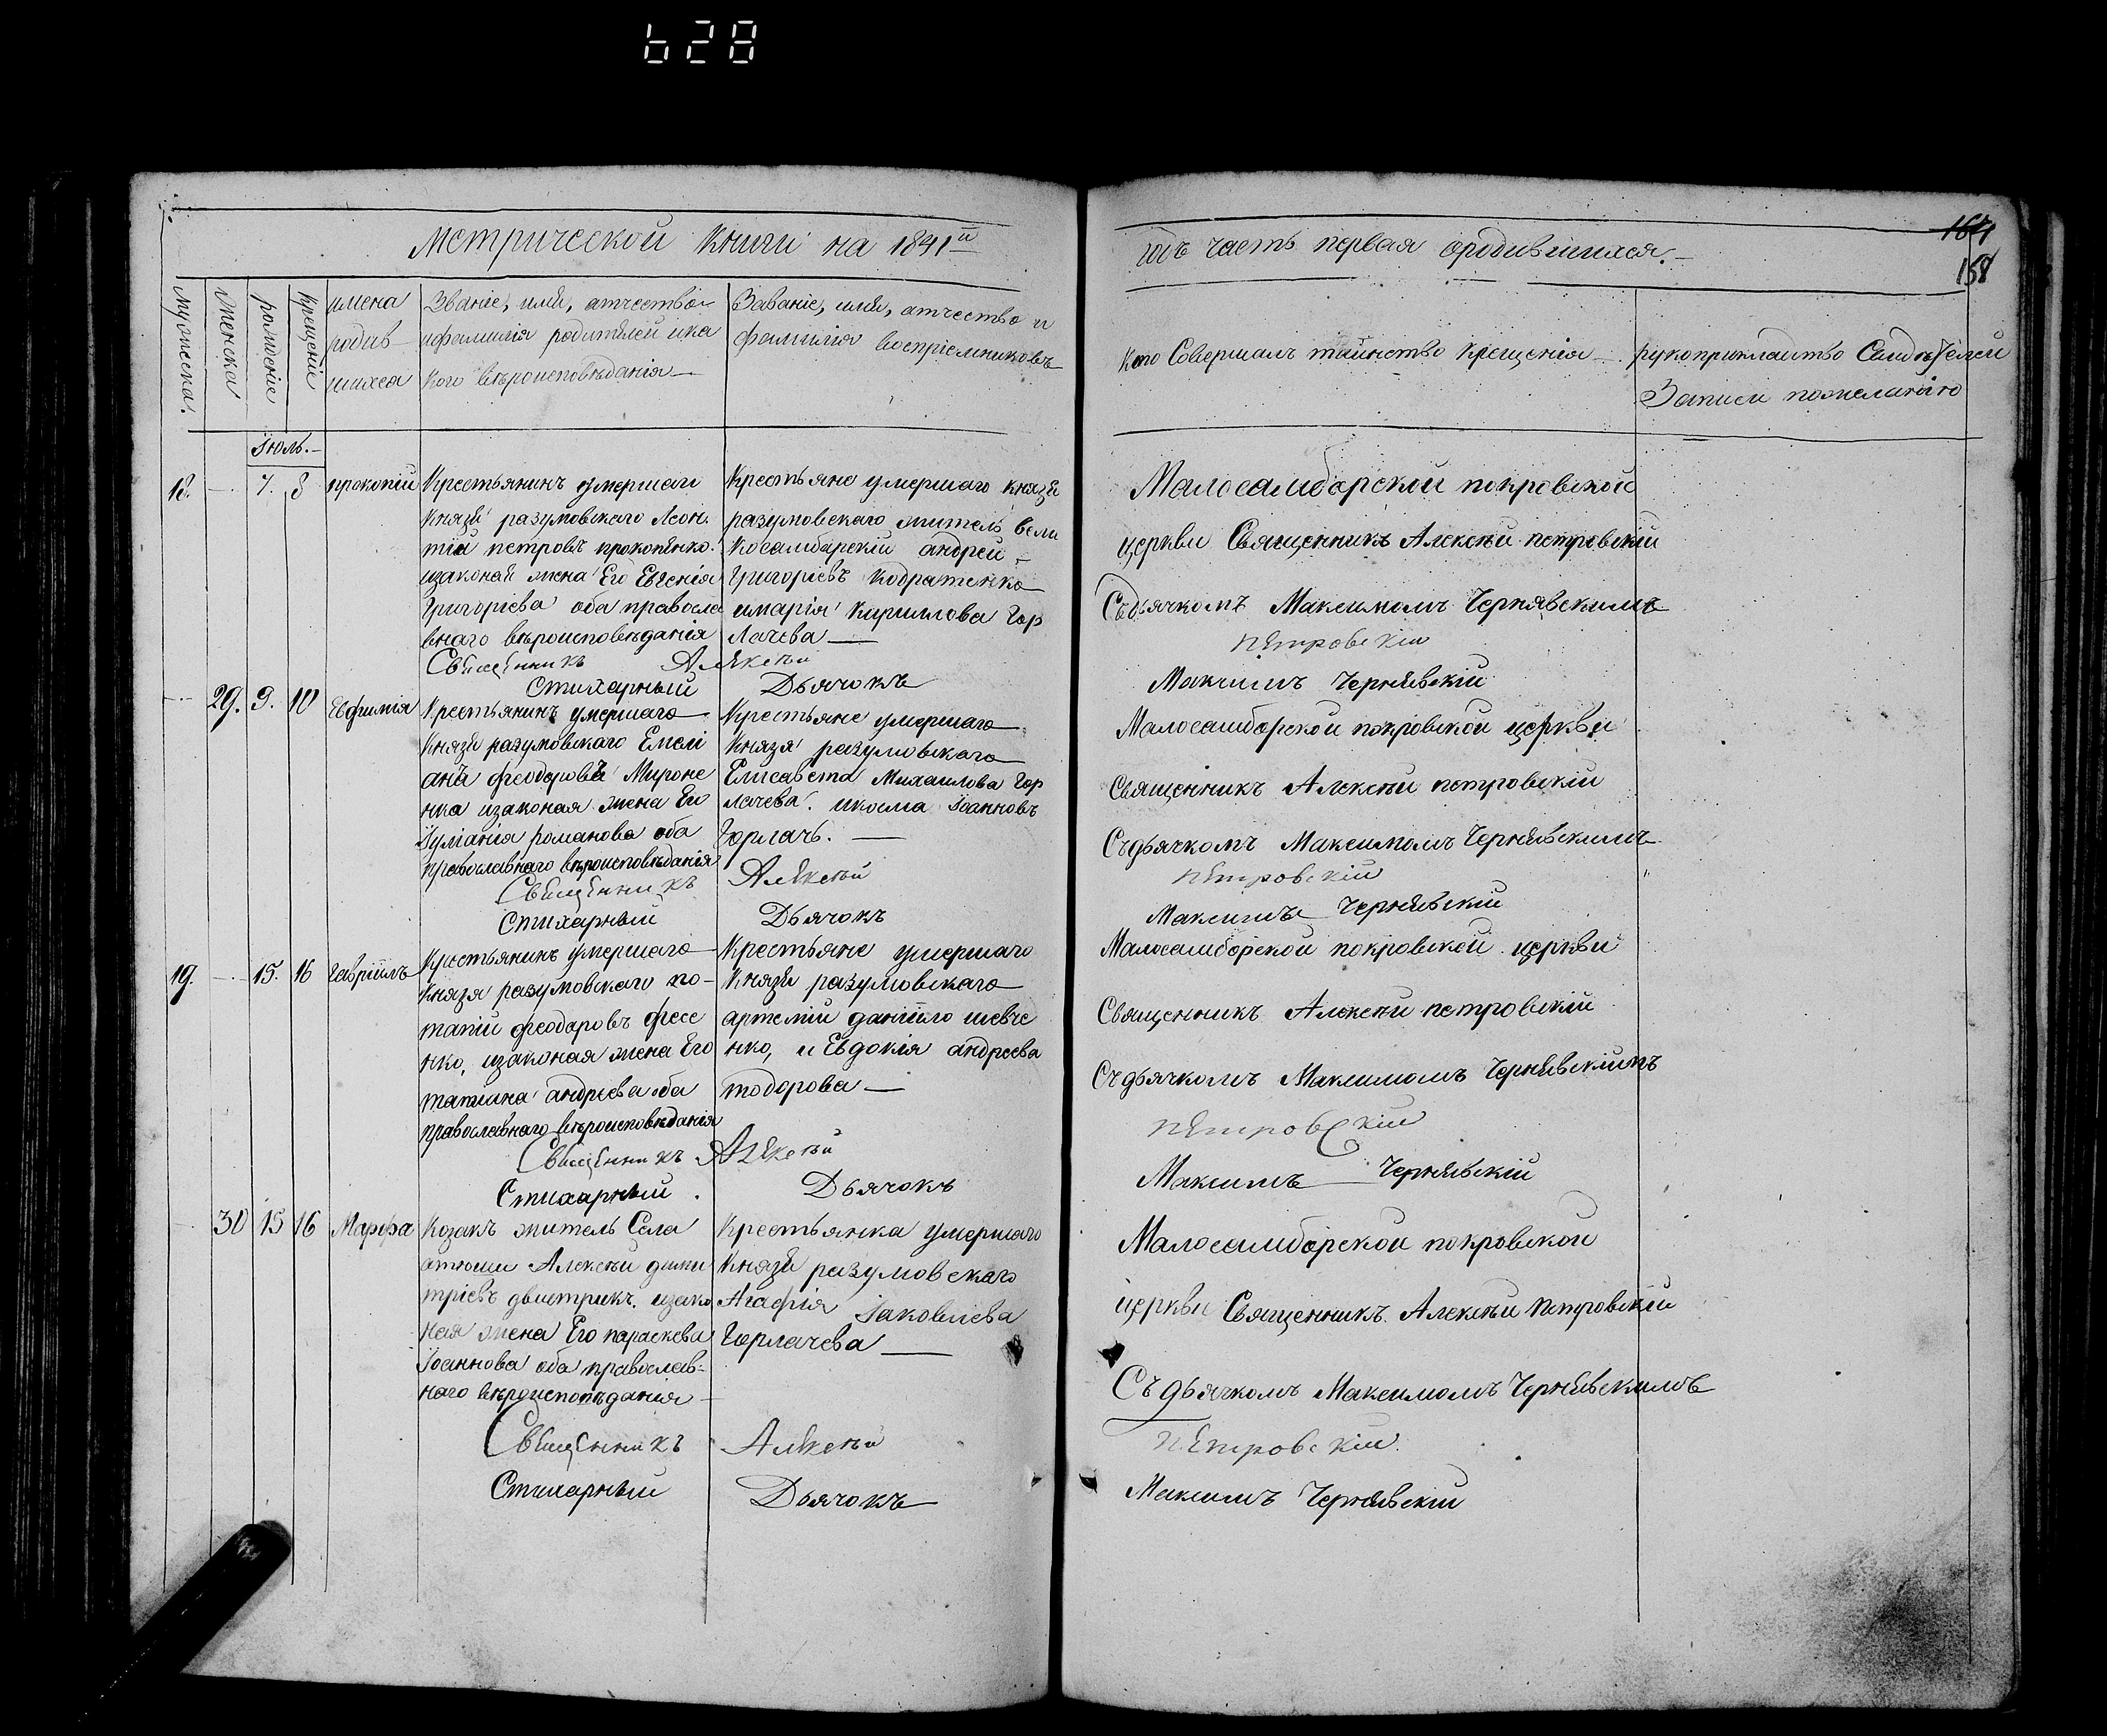 628
Метрической книги на 1841й
годъ часть первая ородившихся.
164
158
мужеска.
женска
рождение
крещение
имена родив-
шихся
Званіе, имя, отчество
ифамилія родителей ика
кого вѣроисповѣданія
Званіе, имя, отчество и
фамилія воспріемниковъ
кто Совершалъ таинство крещенія
рукоприкладство Свидѣтелей
Записи пожеланію
Іюль.
18. — 7. 8 прокопій
Крестьянинъ умершаго
Князя разумовскаго Леон
тій петровъ прокопенко.
изаконая жена Его Евгенія
Григорієва оба правосла
внаго вѣроисповѣданія
Крестьяне умершаго князя
разумовскаго житель вели
косамбарскій андрей
Григоріевъ кодратенко
имарія Кириллова Гор
лачева —
Малосамборской покровской
церкви Священникъ Алексѣй петровскій
Съдьячкомъ Максимомъ Чернявскимъ
Священникъ Алексѣй петровскій
Стихарный Дьячокъ Максимъ Чернявскій
— 29. 9. 10 Евфимія
Крестьянинъ умершаго
Князя разумовскаго Емелі
анъ феодоровъ Мироне
нка изаконая жена Его
Іуліанія романова оба
православнаго вѣроисповѣданія
Крестьяне умершаго
Князя разумовскаго
Елисавета Михаилова Гор
лачева. икосма Іоанновъ
Горлачь. —
Малосамборской покровской церкви
Священникъ Алексѣй петровскій
Съдьячкомъ Максимомъ Чернявскимъ
Священникъ Алексѣй петровскій
Стихарный Дьячокъ Максимъ Чернявскій
19. — 15. 16 Гавріилъ
Крестьянинъ умершаго
Князя разумовскаго по-
тапій феодоровъ фесе
нко, изаконая жена Его
татиана андреева оба
православнаго вѣроисповѣданія
Крестьяне умершаго
Князя разумовскаго
артемій даніило шевче
нко, и Евдокія андреева
тодорова —
Малосамборской покровской церкви
Священникъ Алексѣй петровскій
Съдьячкомъ Максимомъ Чернявскимъ
Священникъ Алексѣй петровскій
Стихарный Дьячокъ Максимъ Чернявскій
— 30 15 16 Марфа
Козакъ житель Села
атюши Алексѣй дими
тріевъ дмитрикъ. изако
ная жена Его параскева
Іоаннова оба православ-
наго вѣроисповѣданія —
Крестьянка умершаго
Князя разумовскаго
Агафія Іаковлева
Горлачева —
Малосамборской покровской
церкви Священникъ Алексѣй петровскій
Съ дьячкомъ Максимомъ Чернявскимъ
Священникъ Алексѣй петровскій
Стихарный Дьячокъ Максимъ Чернявскій